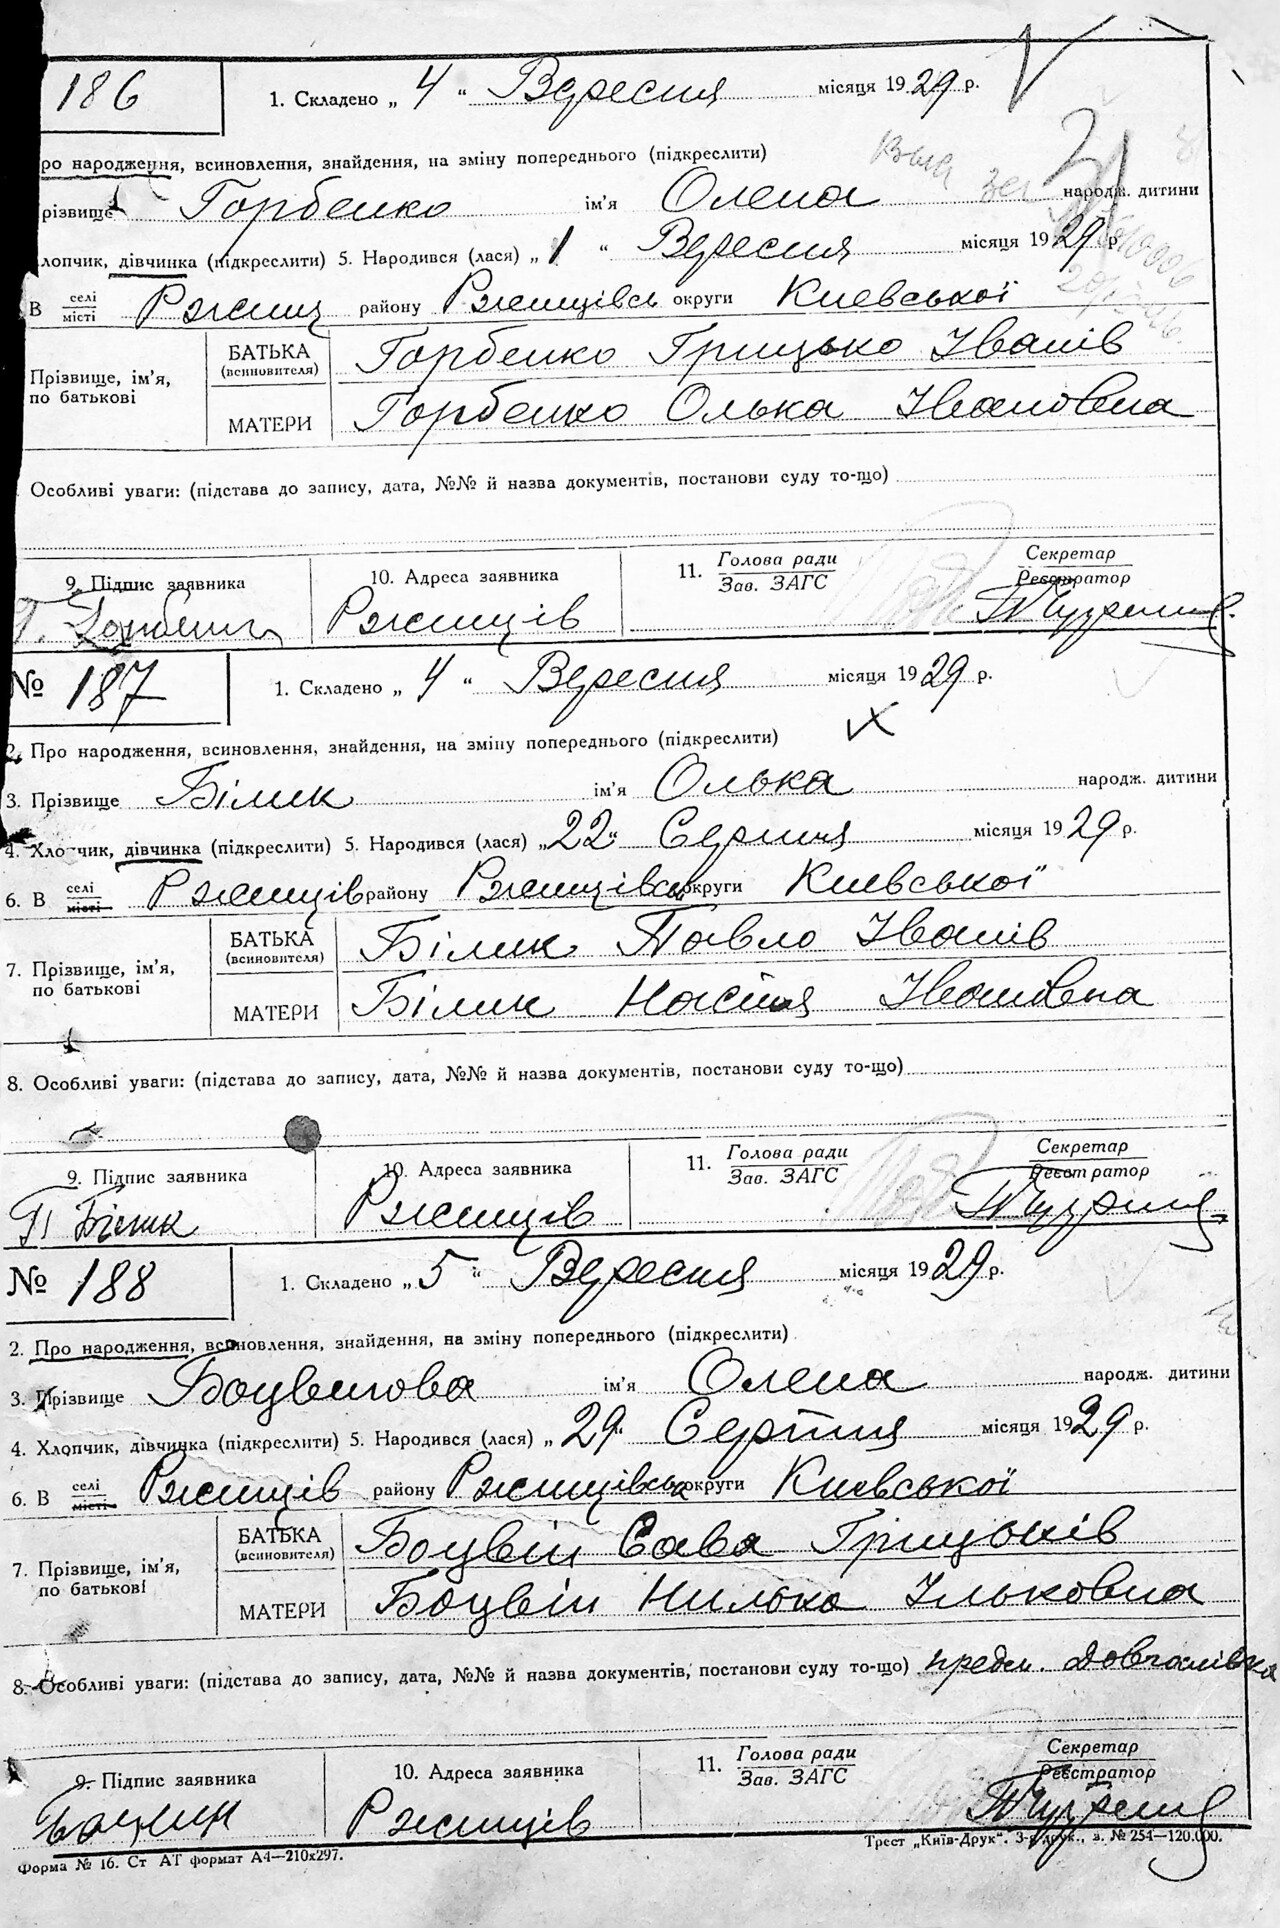 186 1. Складено „ 4 “ Вересня місяця 1929 р.
ро народження, всиновлення, знайдення, на зміну попереднього (підкреслити)
різвище Горбенко ім'я Олена народж. дитини
лопчик, дівчинка (підкреслити) 5. Народився (лася) „ 1 “ Вересня місяця 1929 р.
В селі місті Ржищ району Ржищівсь округи Киевської
Прізвище, ім'я, по батькові БАТЬКА (всиновителя) Горбенко Грицько Іванів
МАТЕРИ Горбенко Олька Івановна
Особливі уваги: (підстава до запису, дата, №№ й назва документів, постанови суду то-що)
9. Підпис заявника 10. Адреса заявника 11. Голова ради Зав. ЗАГС Секретар Реєстратор
Г. Ржищів
№ 187 1. Складено „ 4 “ Вересня місяця 1929 р.
2. Про народження, всиновлення, знайдення, на зміну попереднього (підкреслити)
3. Прізвище Білик ім'я Олька народж. дитини
4. Хлопчик, дівчинка (підкреслити) 5. Народився (лася) „ 22 “ Серпня місяця 1929 р.
6. В селі місті Ржищів району Ржищівськ округи Киевської
7. Прізвище, ім'я, по батькові БАТЬКА (всиновителя) Білик Павло Іванів
МАТЕРИ Білик Настя Івановна
8. Особливі уваги: (підстава до запису, дата, №№ й назва документів, постанови суду то-що)
9. Підпис заявника 10. Адреса заявника 11. Голова ради Зав. ЗАГС Секретар Реєстратор
П Білик Ржищів
№ 188 1. Складено „ 5 “ Вересня місяця 1929 р.
2. Про народження, всиновлення, знайдення, на зміну попереднього (підкреслити)
3. Прізвище Боцвинова ім'я Олена народж. дитини
4. Хлопчик, дівчинка (підкреслити) 5. Народився (лася) „ 29 “ Серпня місяця 1929 р.
6. В селі місті Ржищів району Ржищівськ округи Киевської
7. Прізвище, ім'я, по батькові БАТЬКА (всиновителя) Боцвін Сава Гріцьків
МАТЕРИ Боцвін Килька Ільковна
8. Особливі уваги: (підстава до запису, дата, №№ й назва документів, постанови суду то-що) предм. Довгалівка
9. Підпис заявника 10. Адреса заявника 11. Голова ради Зав. ЗАГС Секретар Реєстратор
Ржищів
Форма № 16. Ст АТ формат А4—210х297. Трест „Київ-Друк“. 3-я друк., з. № 254—120.000.